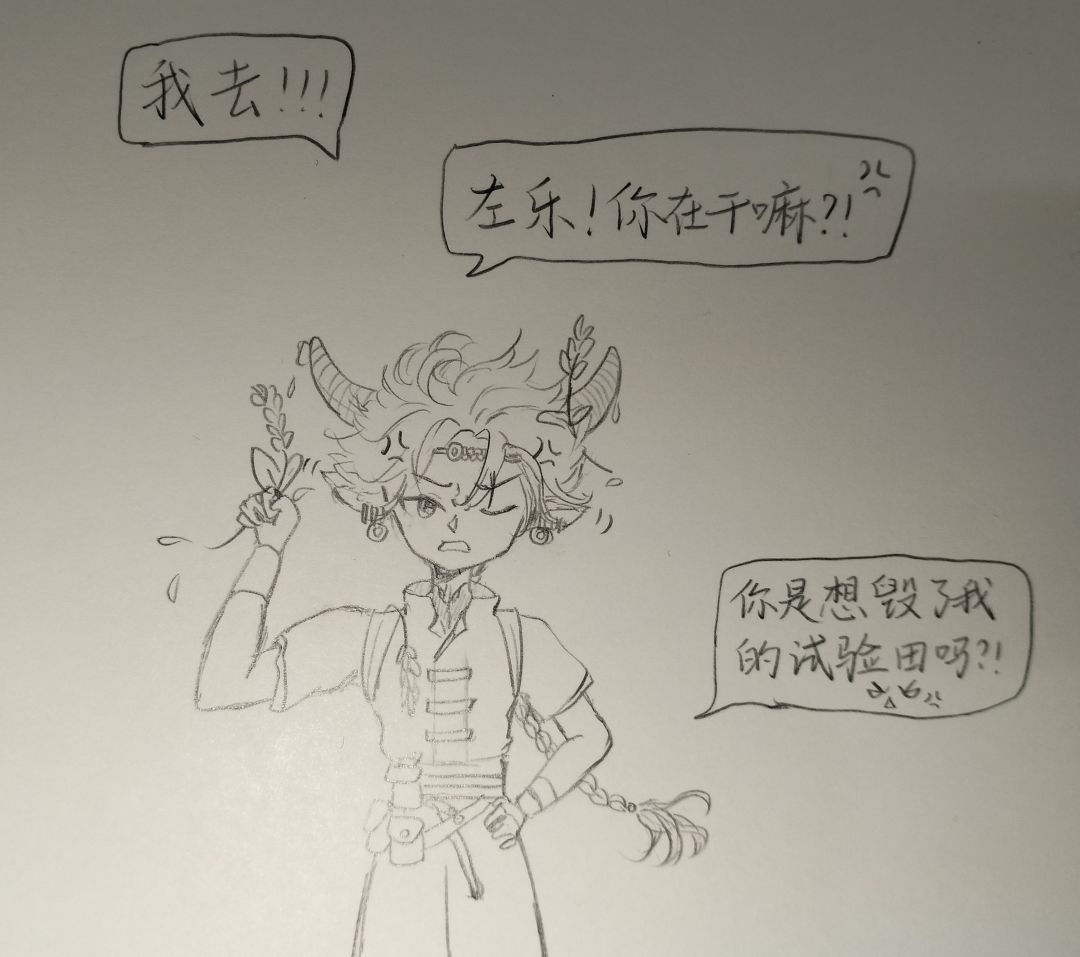 我去!!!
左乐!你在干嘛?!
你是想毁了我
的试验田吗?!